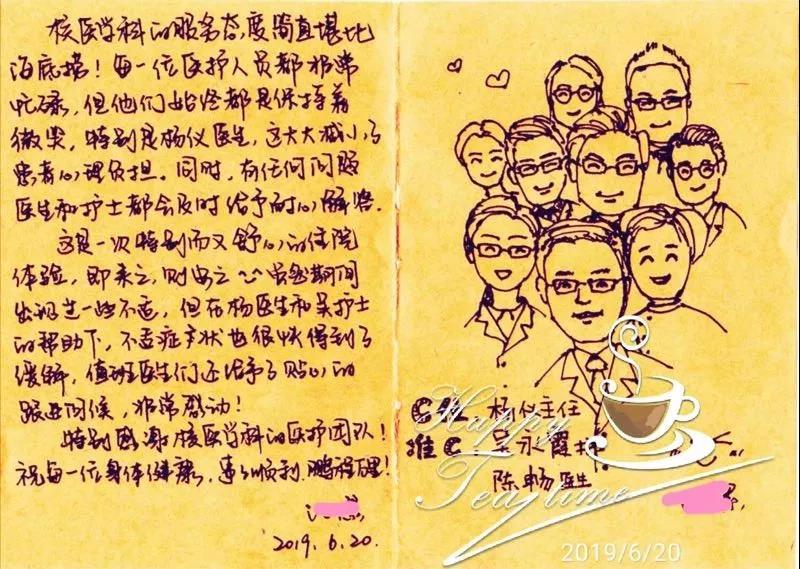 核医学科的服务态度简直堪比
海底捞！每一位医护人员都非常
忙碌，但他们始终都是保持着
微笑，特别是杨仪医生，这大大减小了
患者心理负担。同时，有任何问题
医生和护士都会及时给予耐心解答。
这是一次特别而又舒心的住院
体验，即来之，则安之 虽然期间
出现过一些不适，但在杨医生和吴护士
的帮助下，不适症状也很快得到了
缓解，值班医生们还给予了贴心的
跟进问候，非常感动！
特别感谢核医学科的医护团队！
祝每一位身体健康，事事顺利，鹏程万里！
2019.6.20.
C位 杨仪主任
准C 吴永霞
陈畅医生
Happy
Tea time
2019/6/20